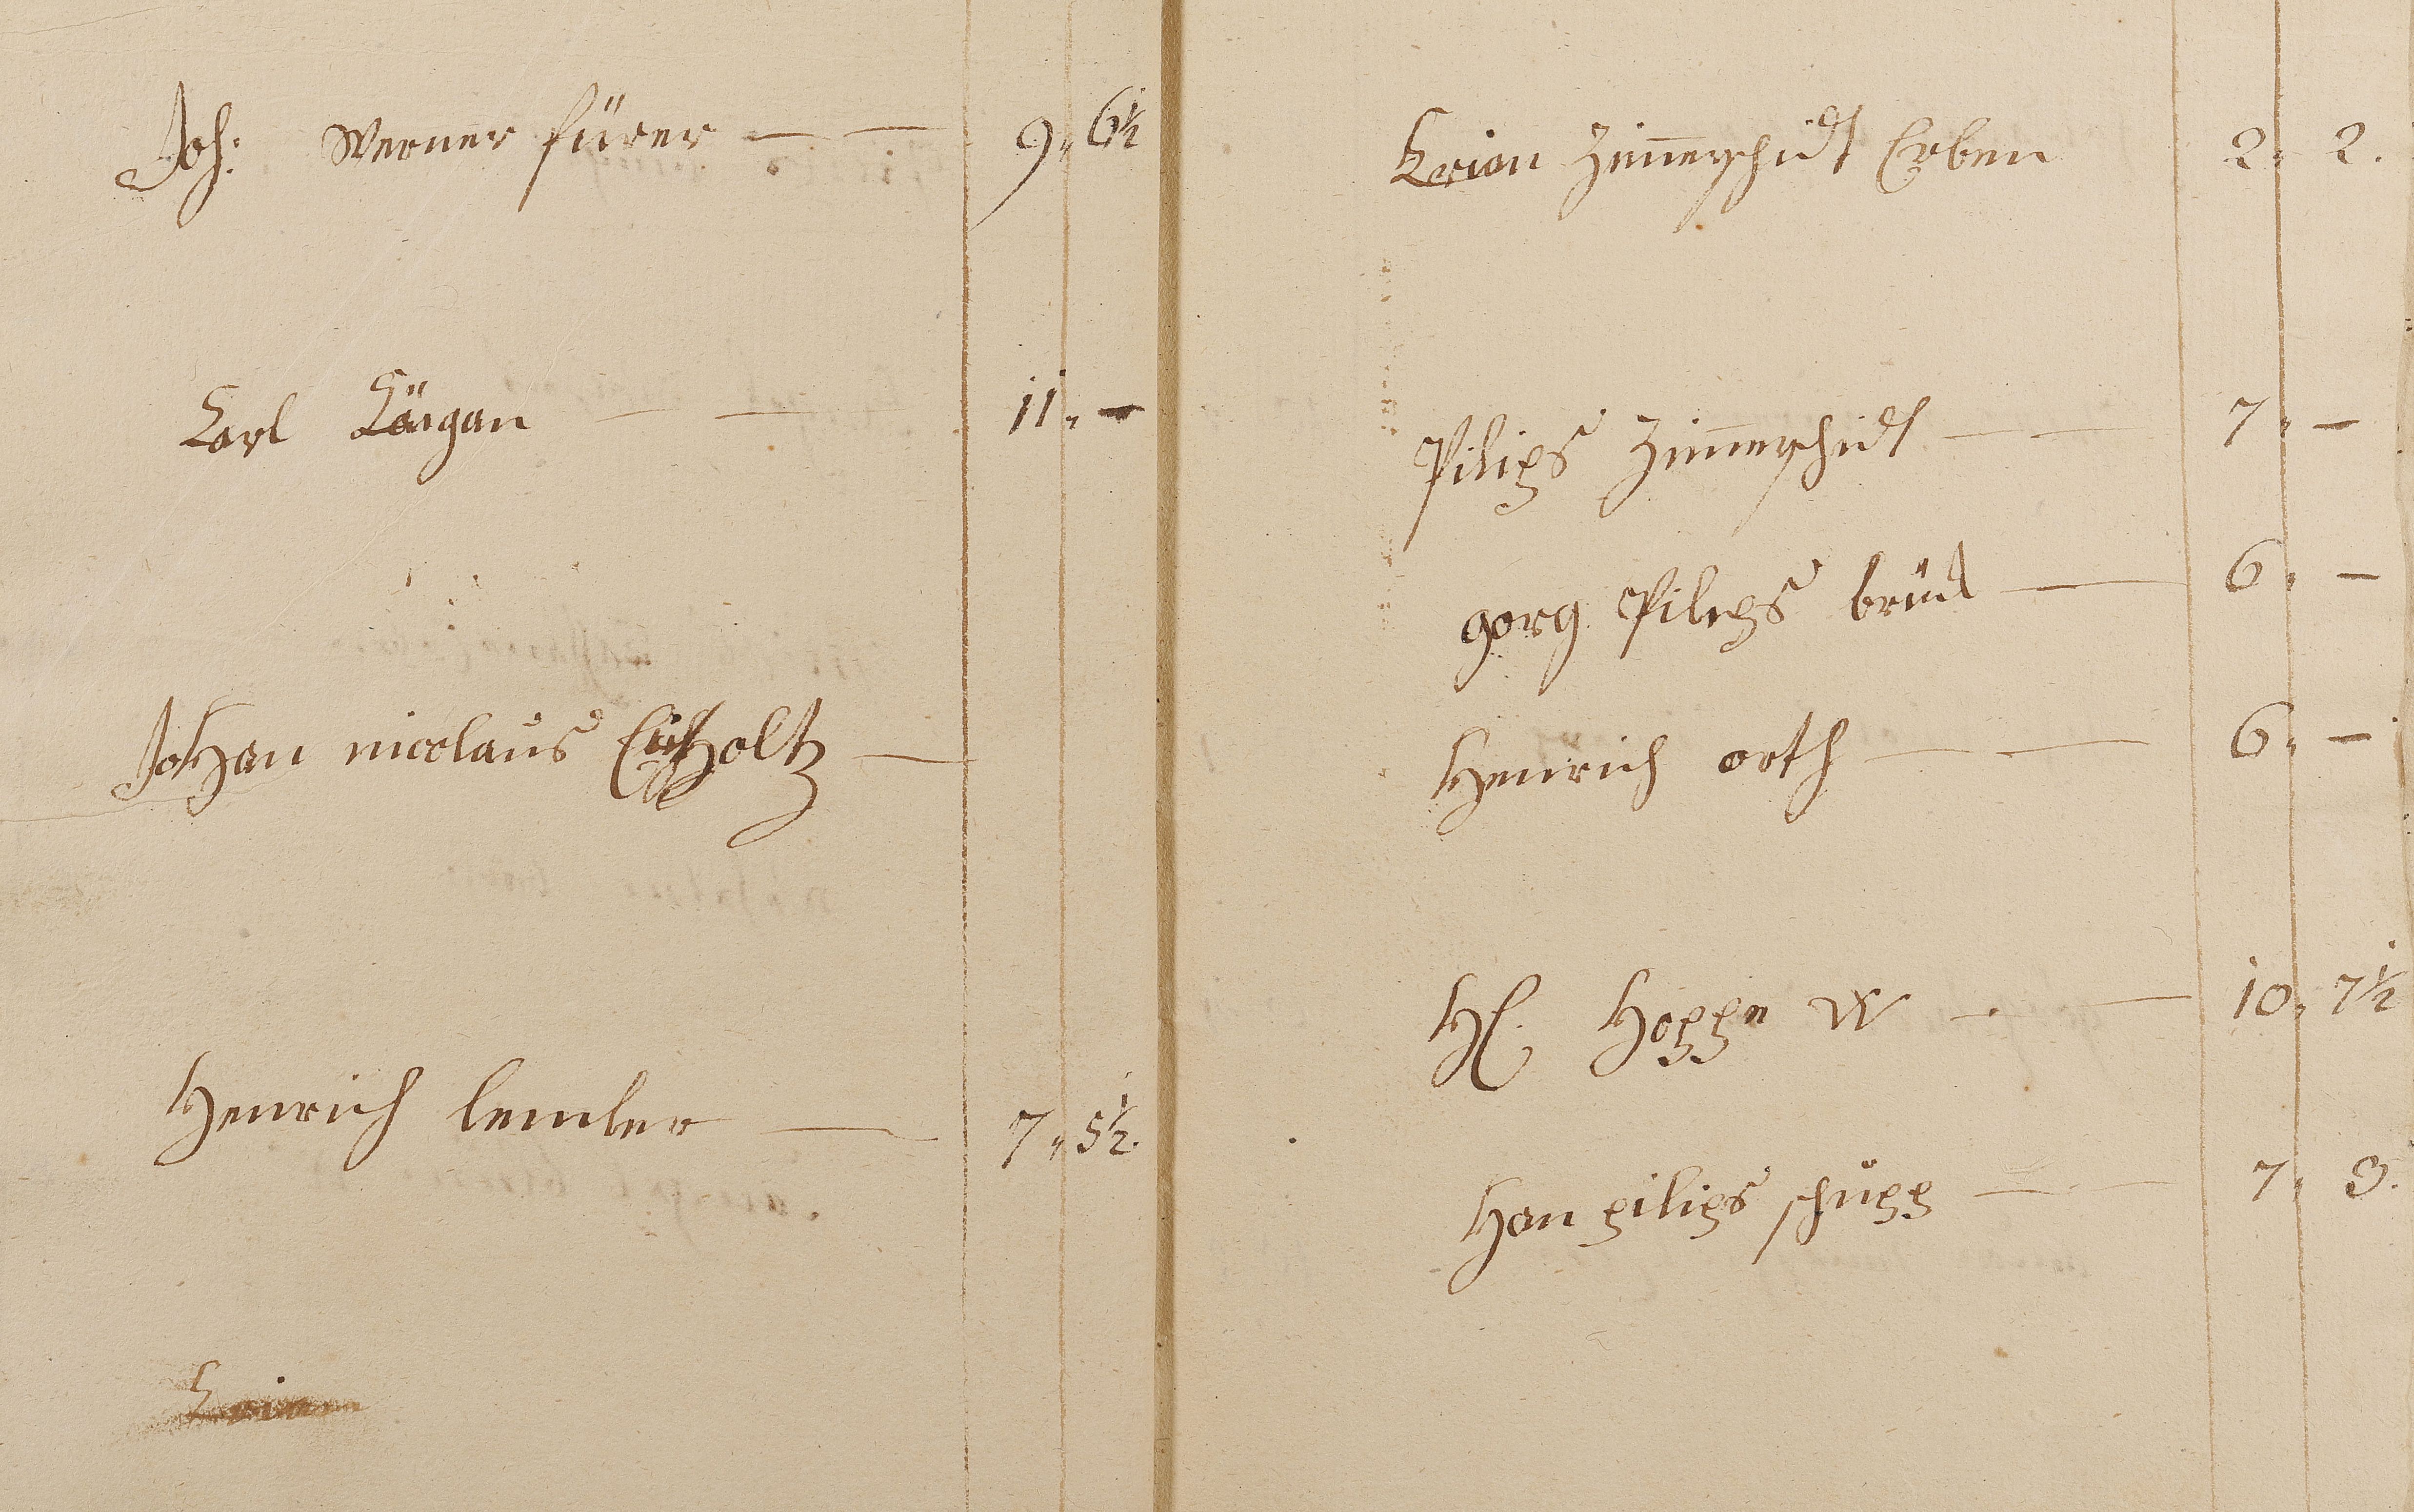 Joh: Werner fürer — — 9„ 6½
Carl Körgan — — 11„ —
Johan nicolaus Eichholtz —
Henrich lemler — 7„ 5½.
Krion Zim̄erschidt Erben 2„ 2.
Pilips Zim̄erschidt — — 7„ —
gorg Pilips brück — 6„ —
Henrich orth — — 6„ —
HE. Hoppe W — — 10„ 7½
Han pilips schupp — — 7„ 3.